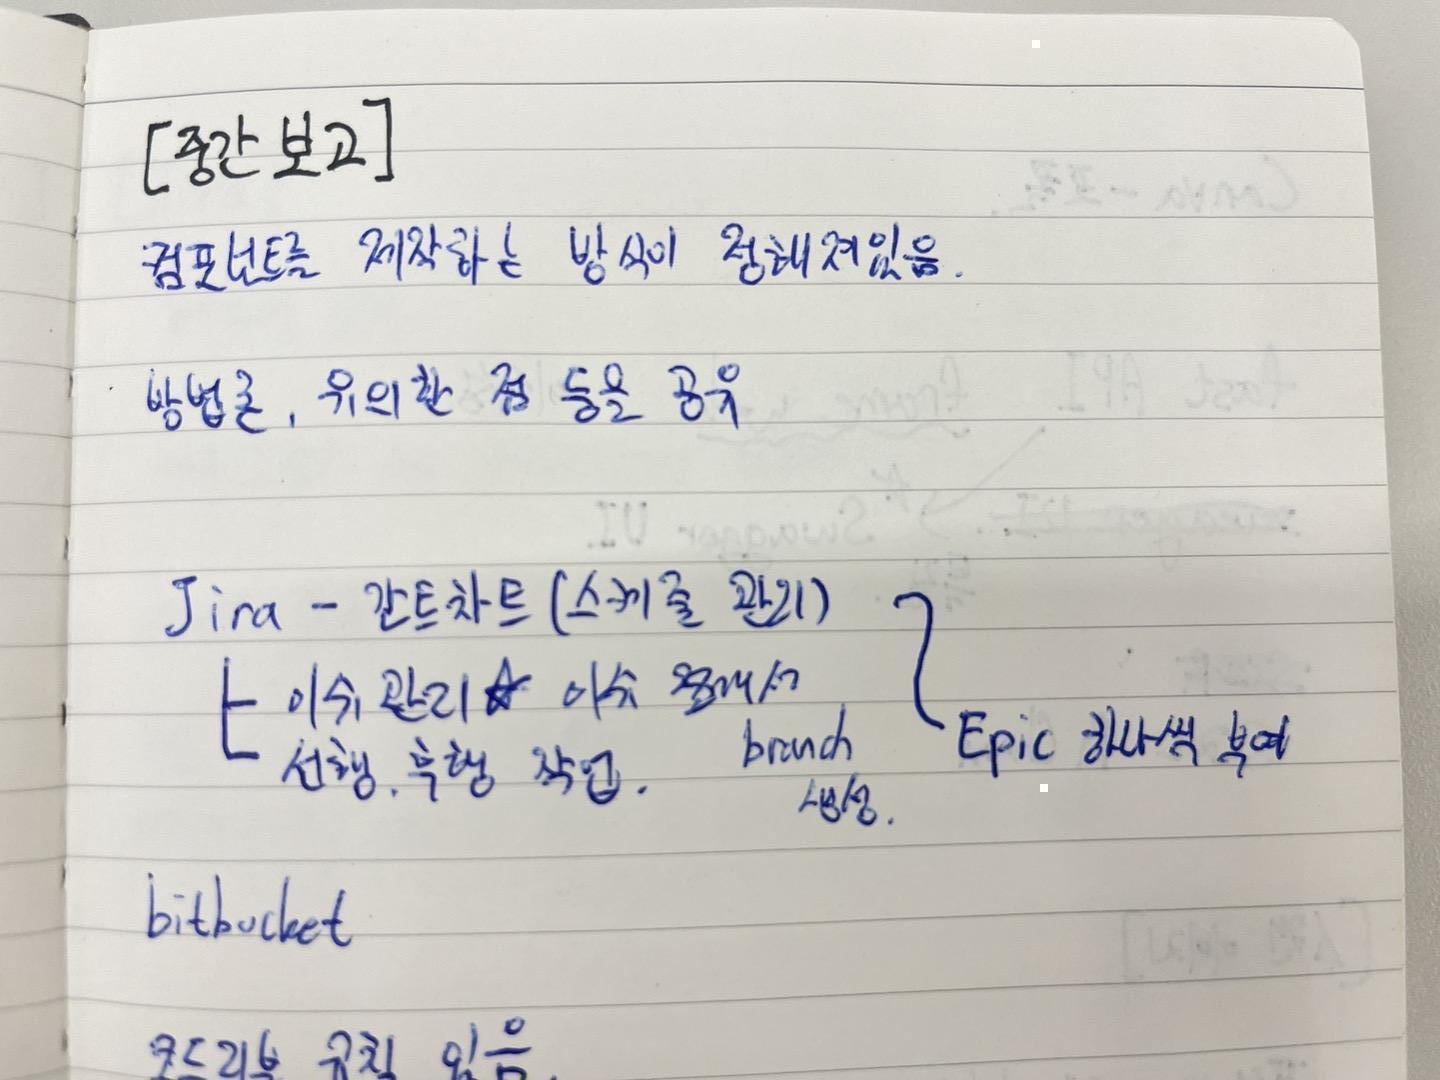 [중간 보고]
컴포넌트를 제작하는 방식이 정해져있음.
방법론, 유의한 점 등을 공유
Jira - 간트차트 (스케줄 관리)
이슈 관리 ☆ 이슈 안에서
branch
생성.
선행, 후행 작업.
Epic 하나씩 부여
bitbucket
코드리뷰 규칙 있음.